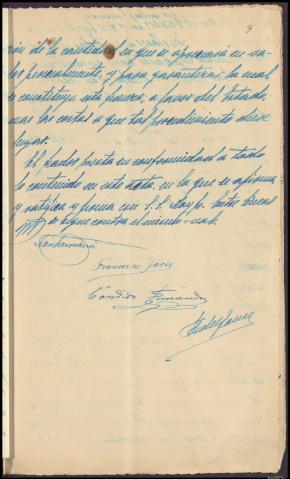 9
ción de la cantidad en que se apreciará en ca-
procesalmente, y para garantizar la cual
se constituye esta fianza, a favor del Estado
mas las costas a que tal procedimiento diese
lugar.
El fiador presta su conformidad a todo
lo contenido en este acta, en la que se afirma
y ratifica y firma con S.S. Doy fe.
contra el mismo
Francisco
Cándido Fernández